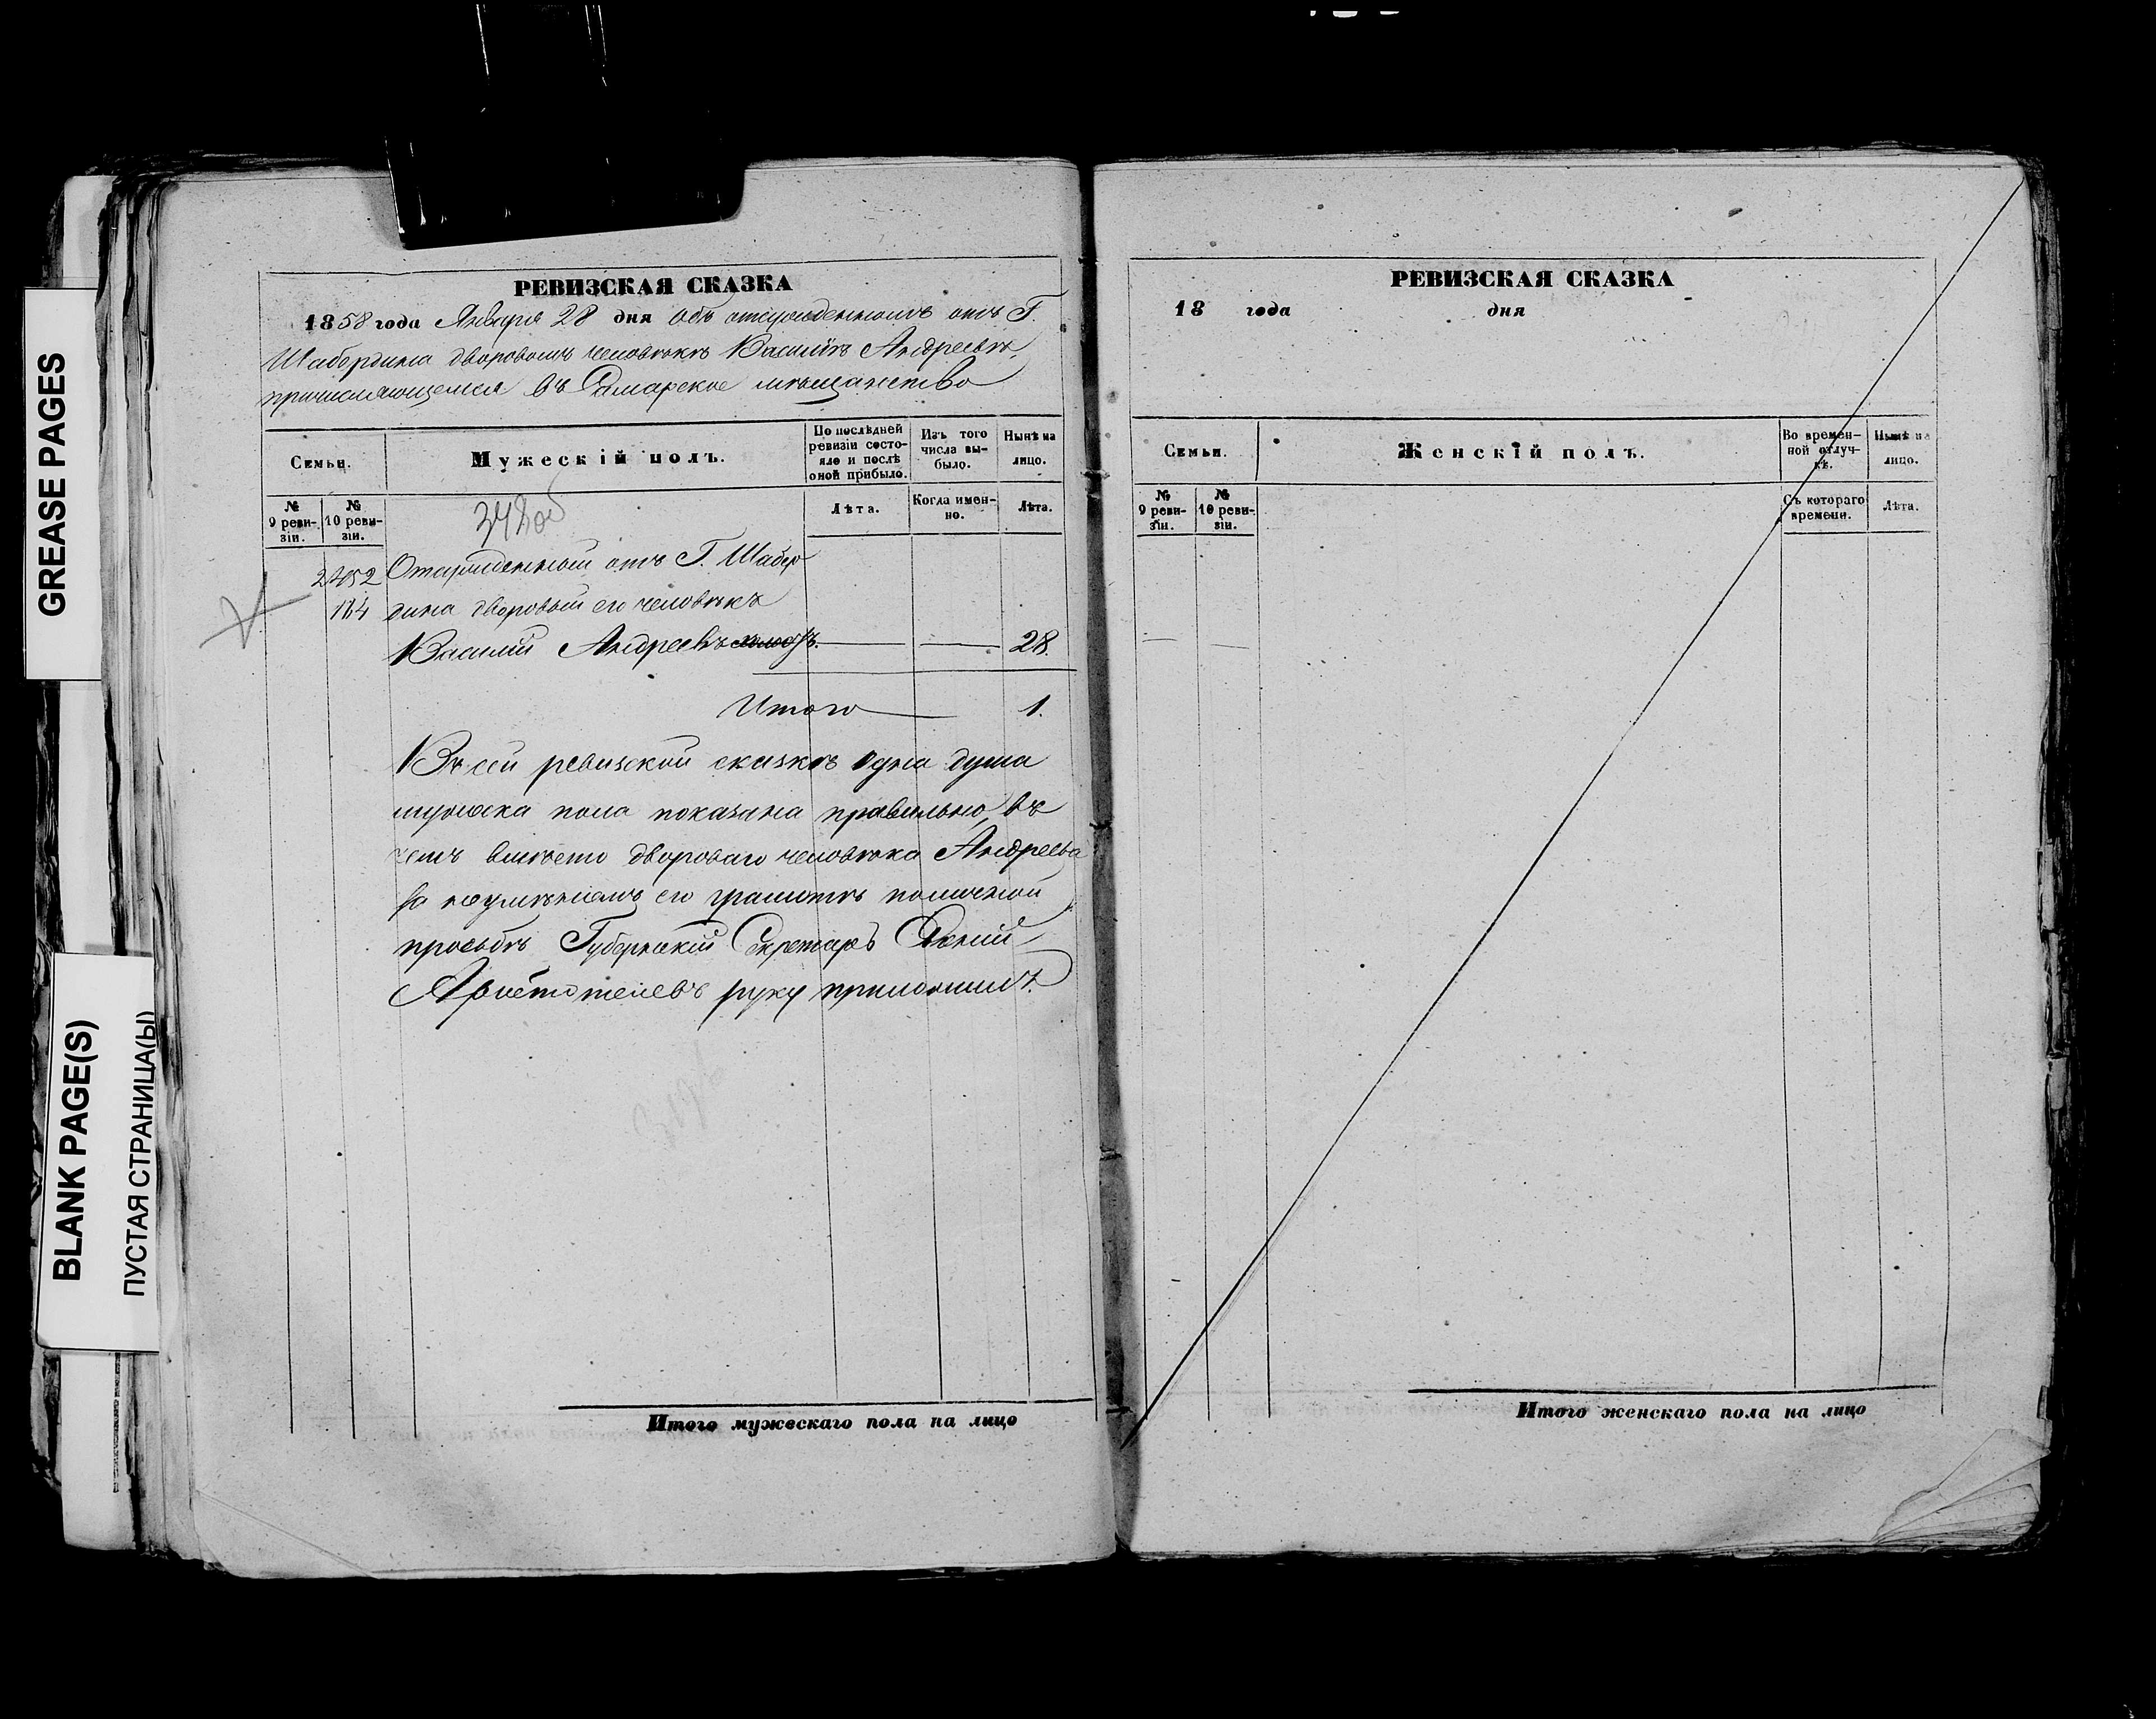 GREASE PAGES
BLANK PAGE(S)
ПУСТАЯ СТРАНИЦА(Ы)
РЕВИЗСКАЯ СКАЗКА
1858 года Января 28 дня объ отсужденномъ отъ Г.
Шабердина дворовомъ человѣкѣ Василіѣ Андреевѣ,
причисляющемся въ Самарское мѣщанство
Семьи.
Мужескій полъ.
По послѣдней ревизіи состояло и послѣ оной прибыло.
Изъ того числа выбыло.
Нынѣ на лицо.
№ 9 ревизіи.
№ 10 ревизіи.
Лѣта.
Когда именно.
Лѣта.
348об
Отсужденный отъ Г. Шабер
184 дина дворовый его человѣкъ
Василій Андреевъ 28.
Итого 1.
Въ сей ревизской сказкѣ одна душа
мужеска пола показана правильно, въ
чемъ вмѣсто двороваго человѣка Андреева
за неумѣніемъ его грамотѣ по личной
просьбѣ Губернскій Секретарь
Аристотелевъ руку приложилъ.
Итого мужескаго пола на лицо
РЕВИЗСКАЯ СКАЗКА
18 года дня
Семьи.
Женскій полъ.
Во временной отлучкѣ.
Нынѣ на лицо.
№ 9 ревизіи.
№ 10 ревизіи.
Съ котораго времени.
Лѣта.
Итого женскаго пола на лицо